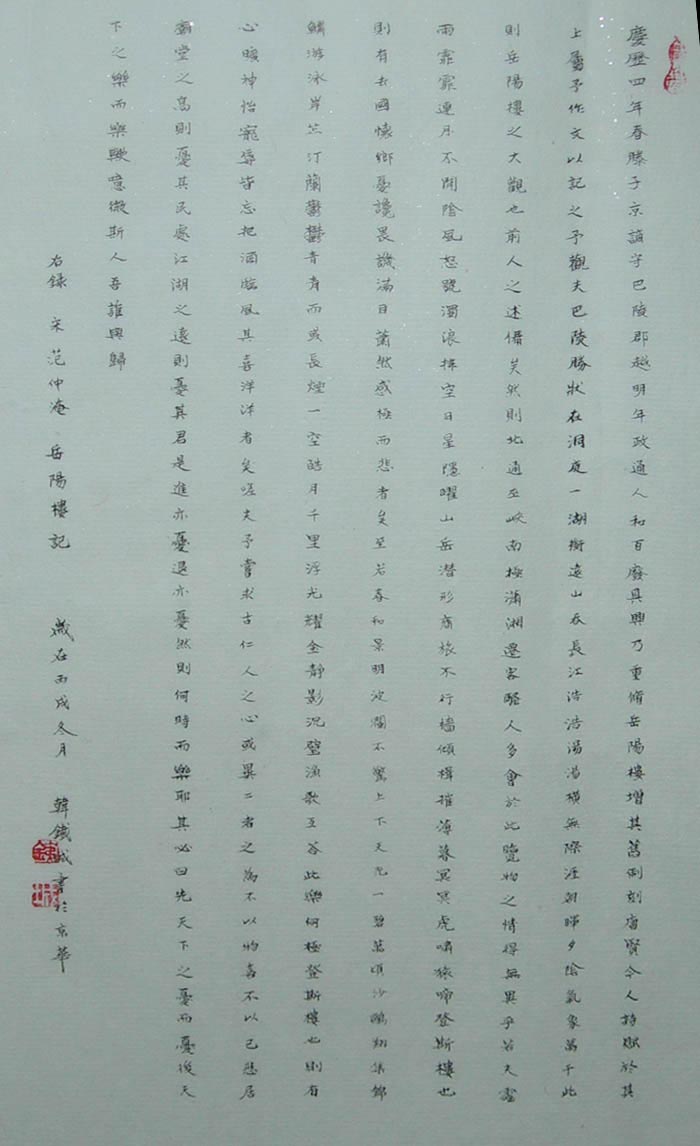 慶歷四年春滕子京謫守巴陵郡越明年政通人和百廢具興乃重脩岳陽樓增其舊制刻唐賢今人詩賦於其
上屬予作文以記之予觀夫巴陵勝狀在洞庭一湖銜遠山吞長江浩浩湯湯橫無際涯朝暉夕陰氣象萬千此
則岳陽樓之大觀也前人之述備矣然則北通巫峽南極瀟湘遷客騷人多會於此覽物之情得無異乎若夫霪
雨霏霏連月不開陰風怒號濁浪排空日星隱曜山岳潛形商旅不行檣傾楫摧薄暮冥冥虎嘯猿啼登斯樓也
則有去國懷鄉憂讒畏譏滿目蕭然感極而悲者矣至若春和景明波瀾不驚上下天光一碧萬頃沙鷗翔集錦
鱗游泳岸芷汀蘭鬱鬱青青而或長煙一空皓月千里浮光耀金靜影沉璧漁歌互答此樂何極登斯樓也則有
心曠神怡寵辱皆忘把酒臨風其喜洋洋者矣嗟夫予嘗求古仁人之心或異二者之為不以物喜不以己悲居
廟堂之高則憂其民處江湖之遠則憂其君是進亦憂退亦憂然則何時而樂耶其必曰先天下之憂而憂後天
下之樂而樂歟噫微斯人吾誰與歸
右錄 宋 范仲淹 岳陽樓記 歲在丙戌冬月 韓鐵城書於京華